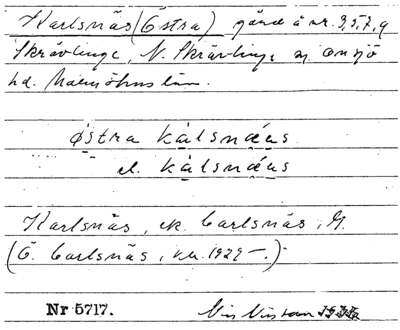 Karlsnäs (Östra) gård å nr. 3, 5, 7, 9
Skrävlinge, V. Skrävlinge sn Onsjö
hd. Malmöhus län.
østra kàlsnäus
el. kàlsnäus
Karlsnäs, ek. Carlsnäs, G.
(Ö. Carlsnäs, ek. 1929 –.)
Nr 5717.